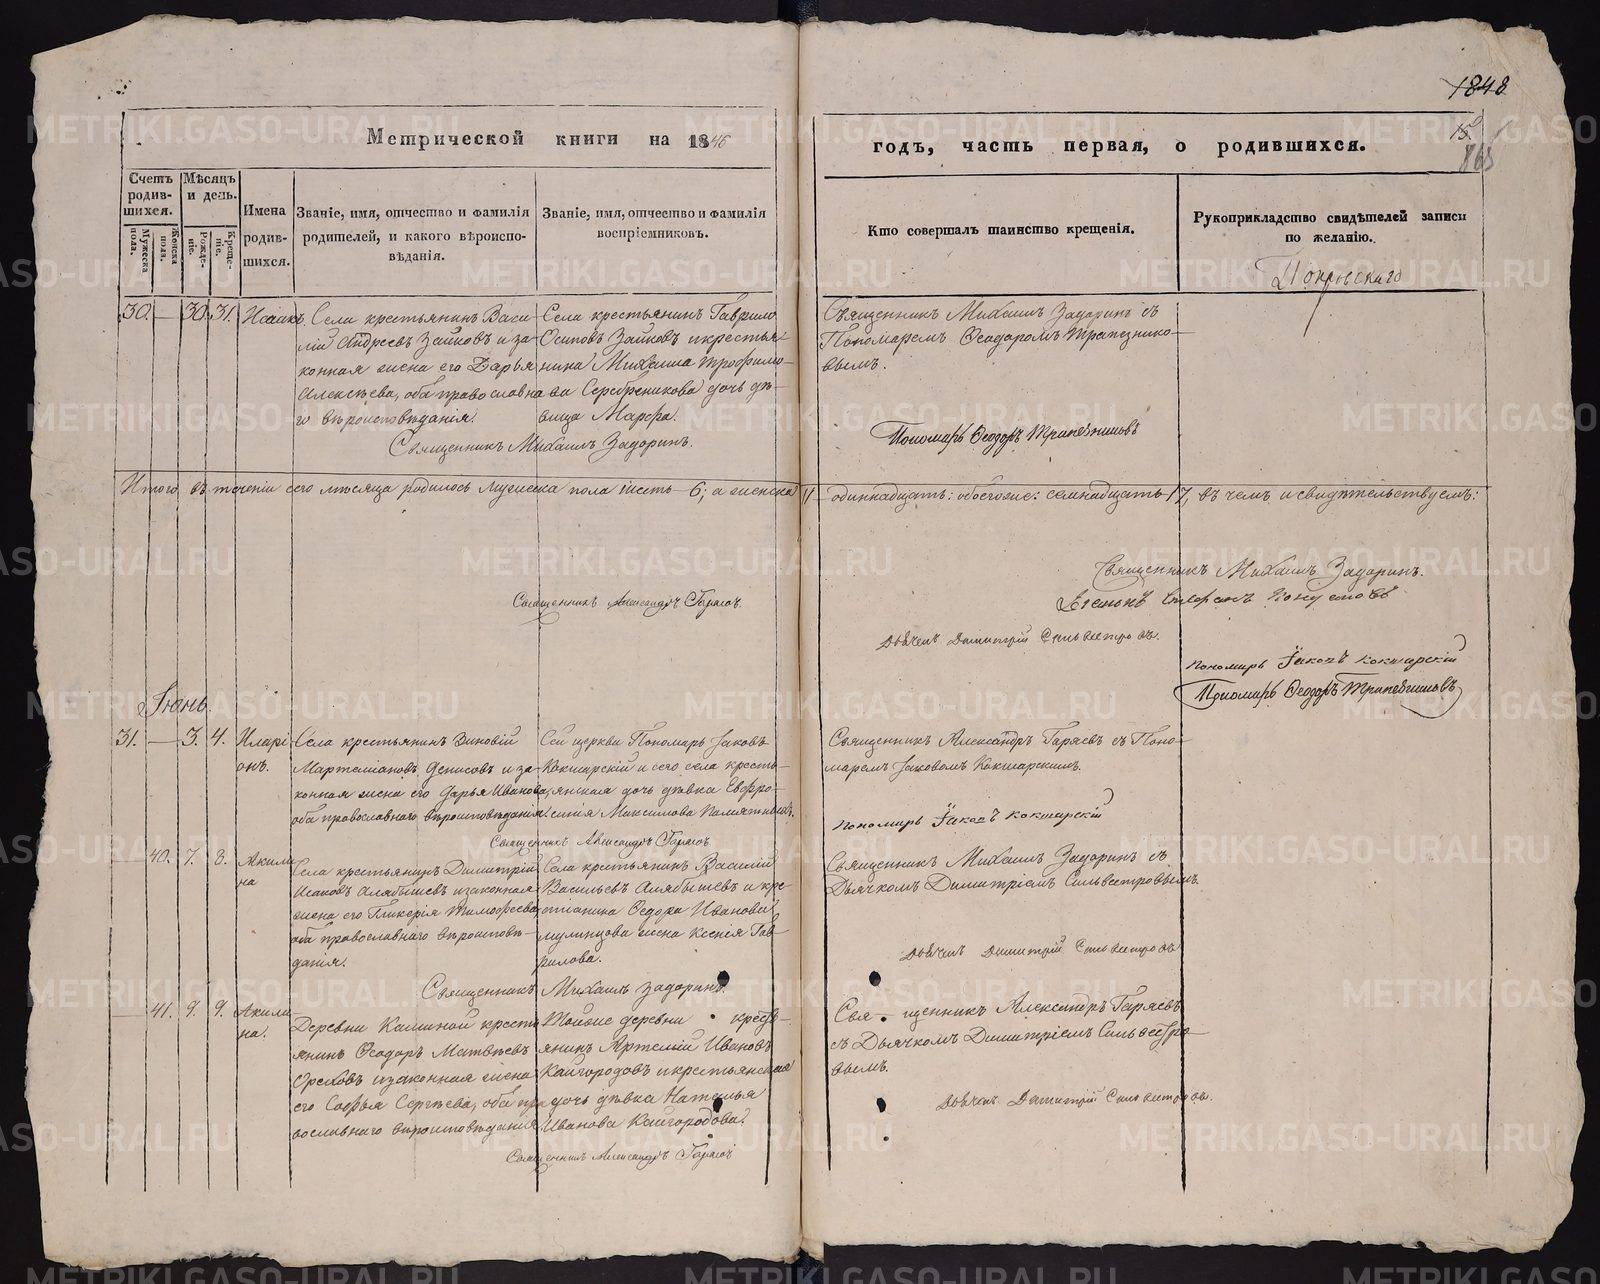 1848
15
Метрической книги на 1846
годъ, часть первая, о родившихся.
Счетъ родившихся.
Мужеска пола.
Женска пола.
Мѣсяцъ и день.
Рожденіе.
Крещеніе.
Имена родившихся.
Званіе, имя, отчество и фамилія родителей, и какого вѣроисповѣданія.
Званіе, имя, отчество и фамилія воспріемниковъ.
Кто совершалъ таинство крещенія.
Рукоприкладство свидѣтелей записи по желанію.
Покровскаго
30. — 30. 31. Исаакъ.
Села крестьянинъ Васи-
лій Андреевъ Зайковъ и за-
конная жена его Дарья
Алексѣева, оба православна-
го вѣроисповѣданія.
Села крестьянинъ Гаврило
Осиповъ Зайковъ и крестья-
нина Михаила Трофимо-
ва Серебреникова дочь дѣ-
вица Марфа.
Священникъ Михаилъ Задоринъ.
Священникъ Михаилъ Задоринъ съ
Пономаремъ Ѳеодоромъ Трапезнико-
вымъ.
Пономарь Ѳеодоръ Трапезниковъ
Итого въ теченіи сего мѣсяца родилось мужеска пола шесть — 6; а женска 11
одиннадцать: обоегоже: семнадцать 17, въ чемъ и свидѣтельствуемъ:
Священникъ Михаилъ Задоринъ.
Священникъ Александръ Гаряевъ.
Дьячекъ Димитрій Сильвестровъ.
Пономарь Іаковъ Кокшарскій
Пономарь Ѳеодоръ Трапезниковъ
Іюнь.
31. — 3. 4. Иларі-
онъ.
Села крестьянинъ Зиновій
Мартеміановъ Денисовъ и за-
конная жена его Дарья Иванова,
оба православнаго вѣроисповѣданія.
Сей церкви Пономарь Іаковъ
Кокшарскій и сего села кресть-
янская дочь дѣвка Евфро-
синія Максимова
Священникъ Александръ Гаряевъ
Священникъ Александръ Гаряевъ съ Поно-
маремъ Іаковомъ Кокшарскимъ.
Пономарь Іаковъ Кокшарскій
— 40. 7. 8. Акили-
на
Села крестьянинъ Димитрій
Исаковъ Алябышевъ и законная
жена его Гликерія Тимофеева,
оба православнаго вѣроисповѣ-
данія.
Села крестьянинъ Василій
Васильевъ Алябышевъ и кре-
стіанина Ѳедора Иванова
жена Ксенія Гав-
рилова.
Священникъ Михаилъ Задоринъ.
Священникъ Михаилъ Задоринъ съ
Дьячкомъ Димитріемъ Сильвестровымъ.
Дьячекъ Димитрій Сильвестровъ
— 41. 9. 9. Акили-
на.
Деревни Калиной кресть-
янинъ Ѳеодоръ Матвѣевъ
Ореховъ и законная жена
его Софья Сергѣева, оба пра-
вославнаго вѣроисповѣданія
Тойже деревни кресть-
янинъ Артемій Ивановъ
Кайгородовъ и крестьянская
дочь дѣвка Наталья
Иванова Кайгородова.
Священникъ Александръ Гаряевъ
Священникъ Александръ Гаряевъ
съ Дьячкомъ Димитріемъ Сильвестро-
вымъ.
Дьячекъ Димитрій Сильвестровъ.
METRIKI.GASO-URAL.RU